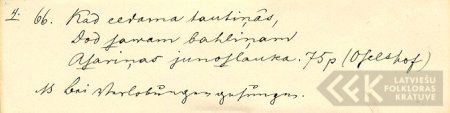 4. 66. Kad eedama tautiņās,
Dod sawam bahliņam
Asariņas junoslauka. 75p (Oselshof)
NB bei Verlobungen gesungen.
LATVIEŠU
FOLKLORAS
KRĀTUVE